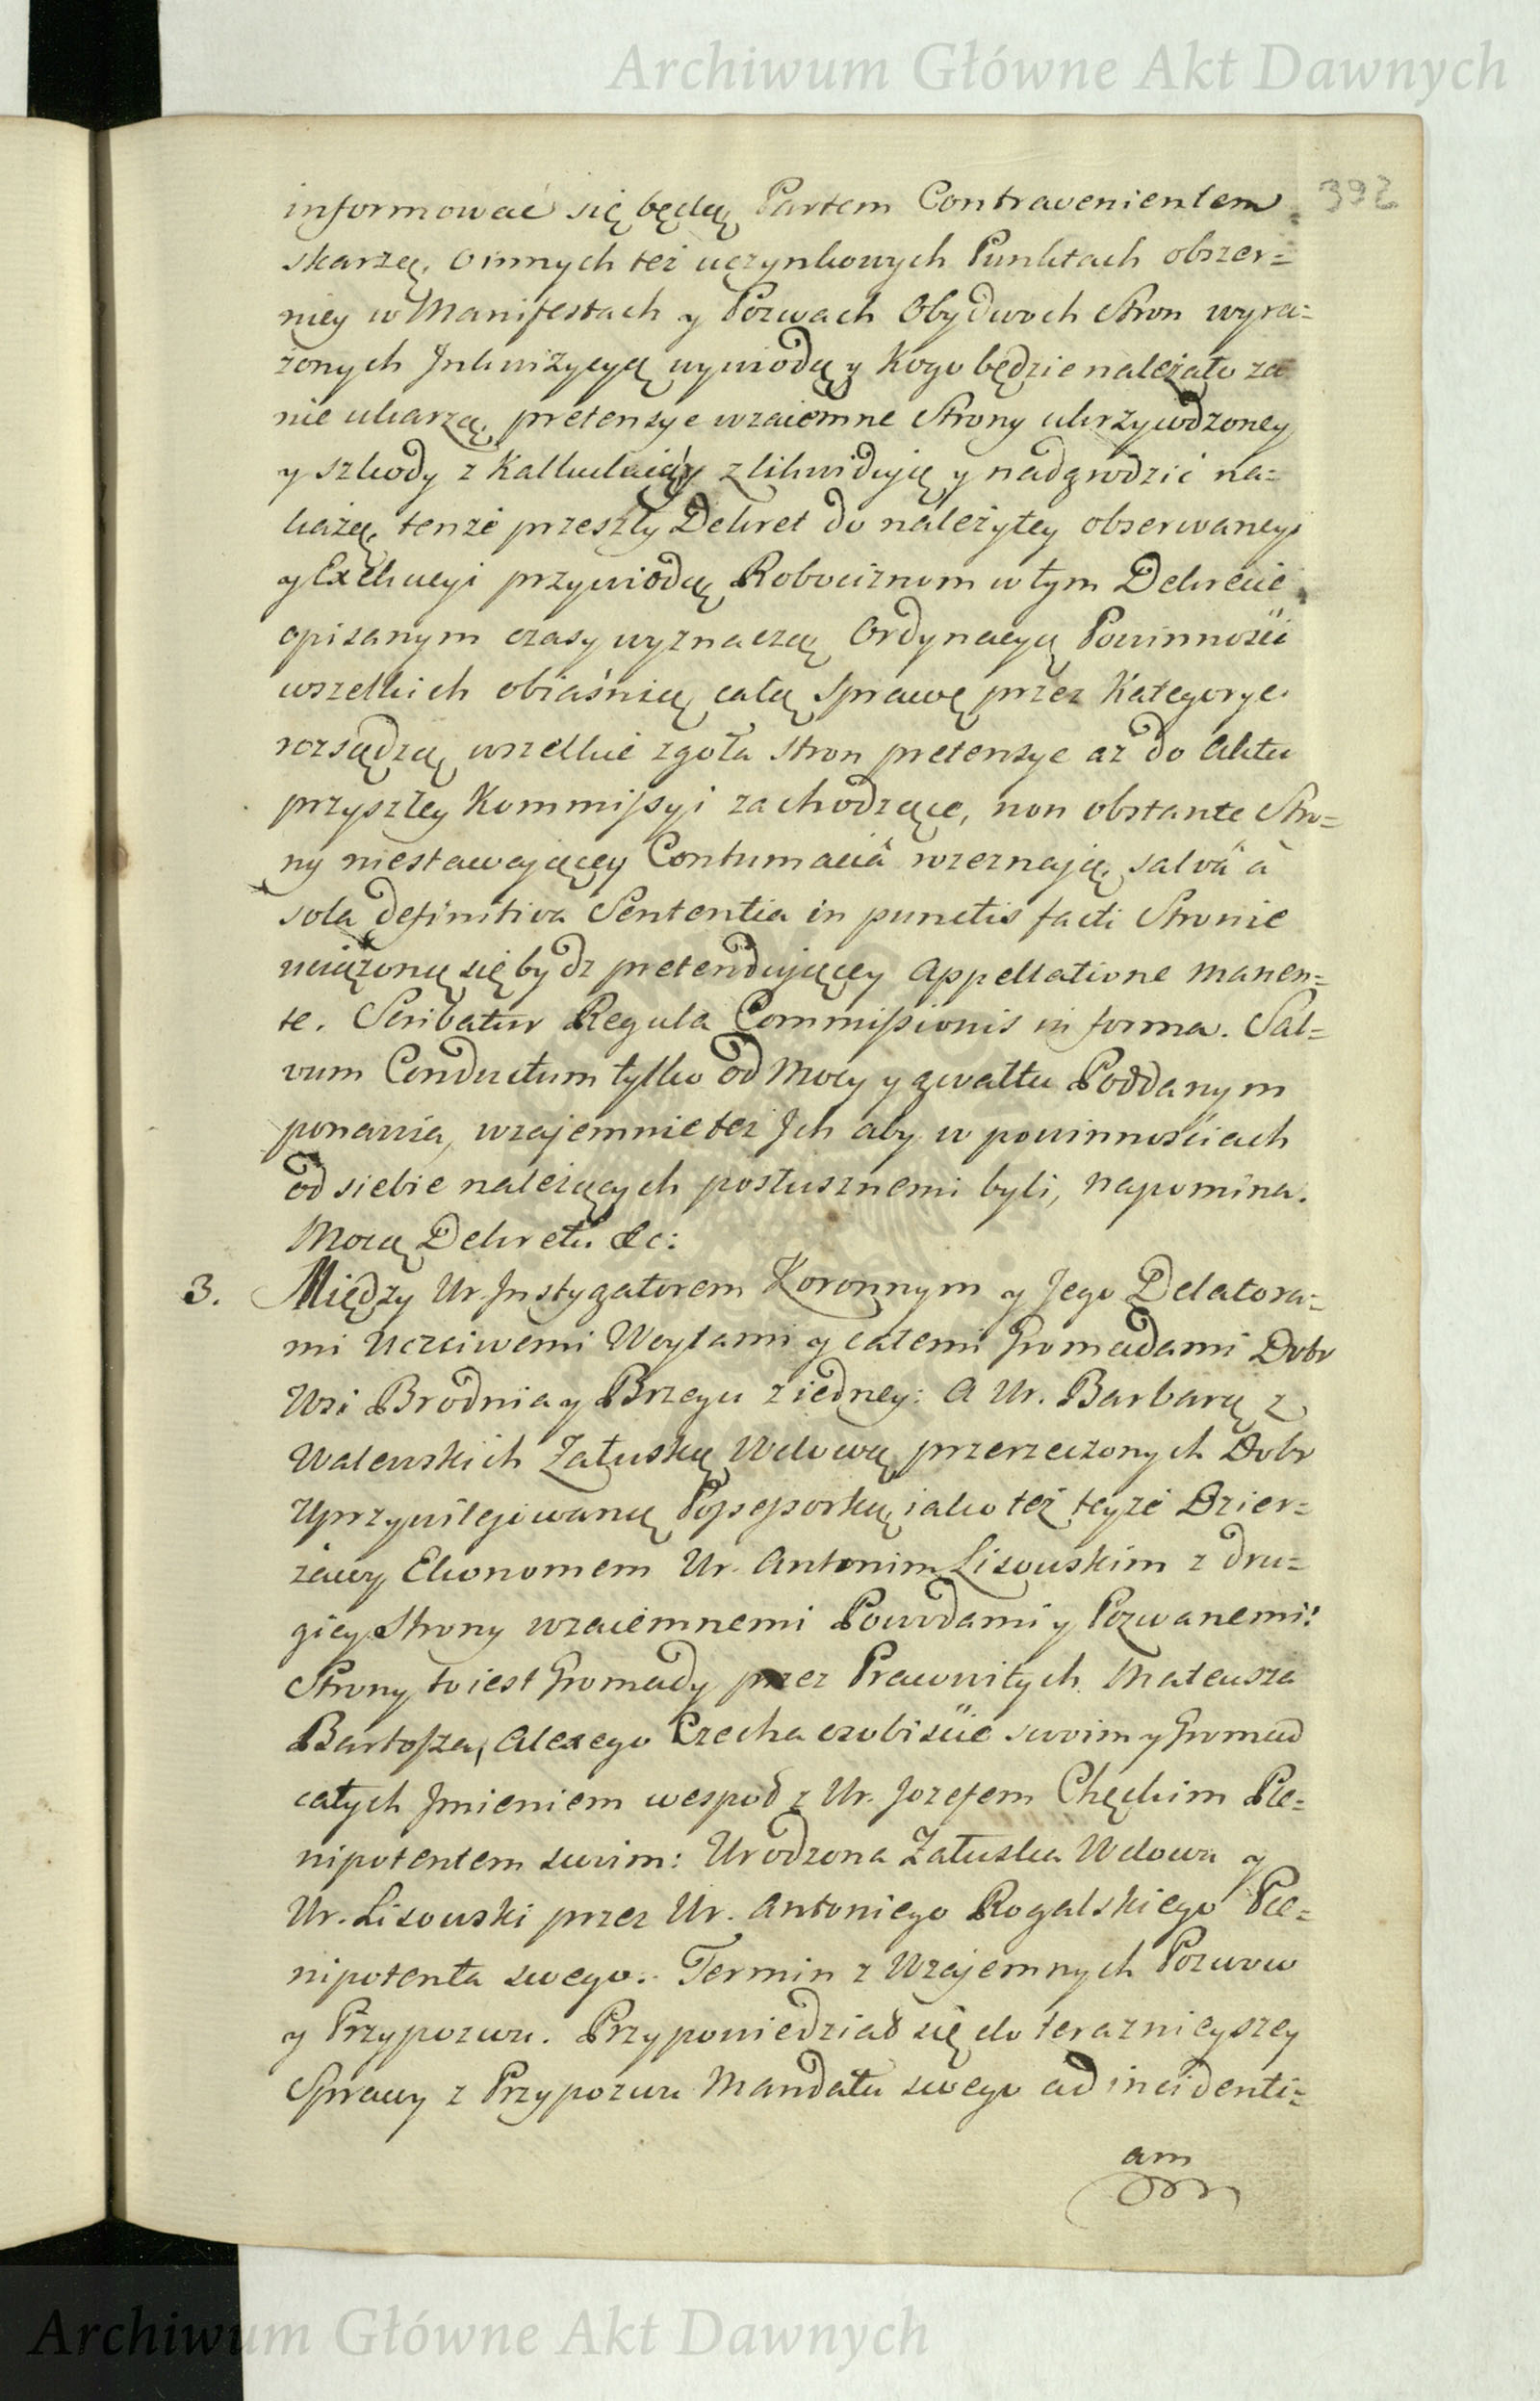 Archiwum Główne Akt Dawnych
392
informować się będą, Partem Contravenientem
skarzą, o innych też uczynkowych Punktach obszer=
niey w Manifestach y Pozwach Obydwoch Stron wyra=
żonych Jnkwizycyą wywiodą y Kogo będzie należało za
nie ukarzą, pretensye wzaiemne Strony ukrzywdzoney
y szkody z zlikwidują y nadgrodzić na=
każą, tenże przeszły Dekret do należytey obserwancyi
y Exekucyi przywiodą, Robociznom w tym Dekrecie
opisanym czasy wyznaczą, Ordynacyą Powinności
wszelkich obiaśnią, całą Sprawę przez Kategorye
rozsądzą, wszelkie zgoła Stron pretensye aż do Aktu
przyszłey Kommissyi zachodzące, non obstante Stro=
ny niestawaiącey Contumaciâ rozeznają, salvâ â
sola definitiva Sententia in punctis facti Stronie
uciążoną się bydz pretendującey Appellatione manen=
te. Scribatur Regula Commissionis in forma. Sal=
vum Conductum tylko od Mocy y gwałtu Poddanym
ponawia, wzajemnie też Jch aby w powinnościach
od siebie należących posłusznemi byli, napomina.
Mocą Dekretu &c:
3. Między Ur. Jnstygatorem Koronnym y Jego Delatora=
mi Uczciwemi Woytami y całemi Gromadami Dobr
Wsi Brodnia y Brzegu z iedney: A Ur. Barbarą z
Walewskich Załuską Wdową przerzeczonych Dobr
Uprzywilejowaną Possessorką, iako też teyże Dzier=
żawy Ekonomem Ur. Antonim Lisowskim z dru=
giey Strony wzaiemnemi Powodami y Pozwanemi:
Strony to iest Gromady przez Pracowitych Mateusza
Bartosza, Alexego Czecha osobiście swoim y Gromad
całych Jmieniem wespoł z Ur. Jozefem Chęckim Ple=
nipotentem swoim: Urodzona Załuska Wdowa y
Ur. Lisowski przez Ur. Antoniego Rogalskiego Ple=
nipotenta swego. Termin z Wzajemnych Pozwow
y Przypozwu. Przypowiedział się do teraznieyszey
Sprawy z Przypozwu Mandatu swego ad incidenti=
am
Archiwum Główne Akt Dawnych